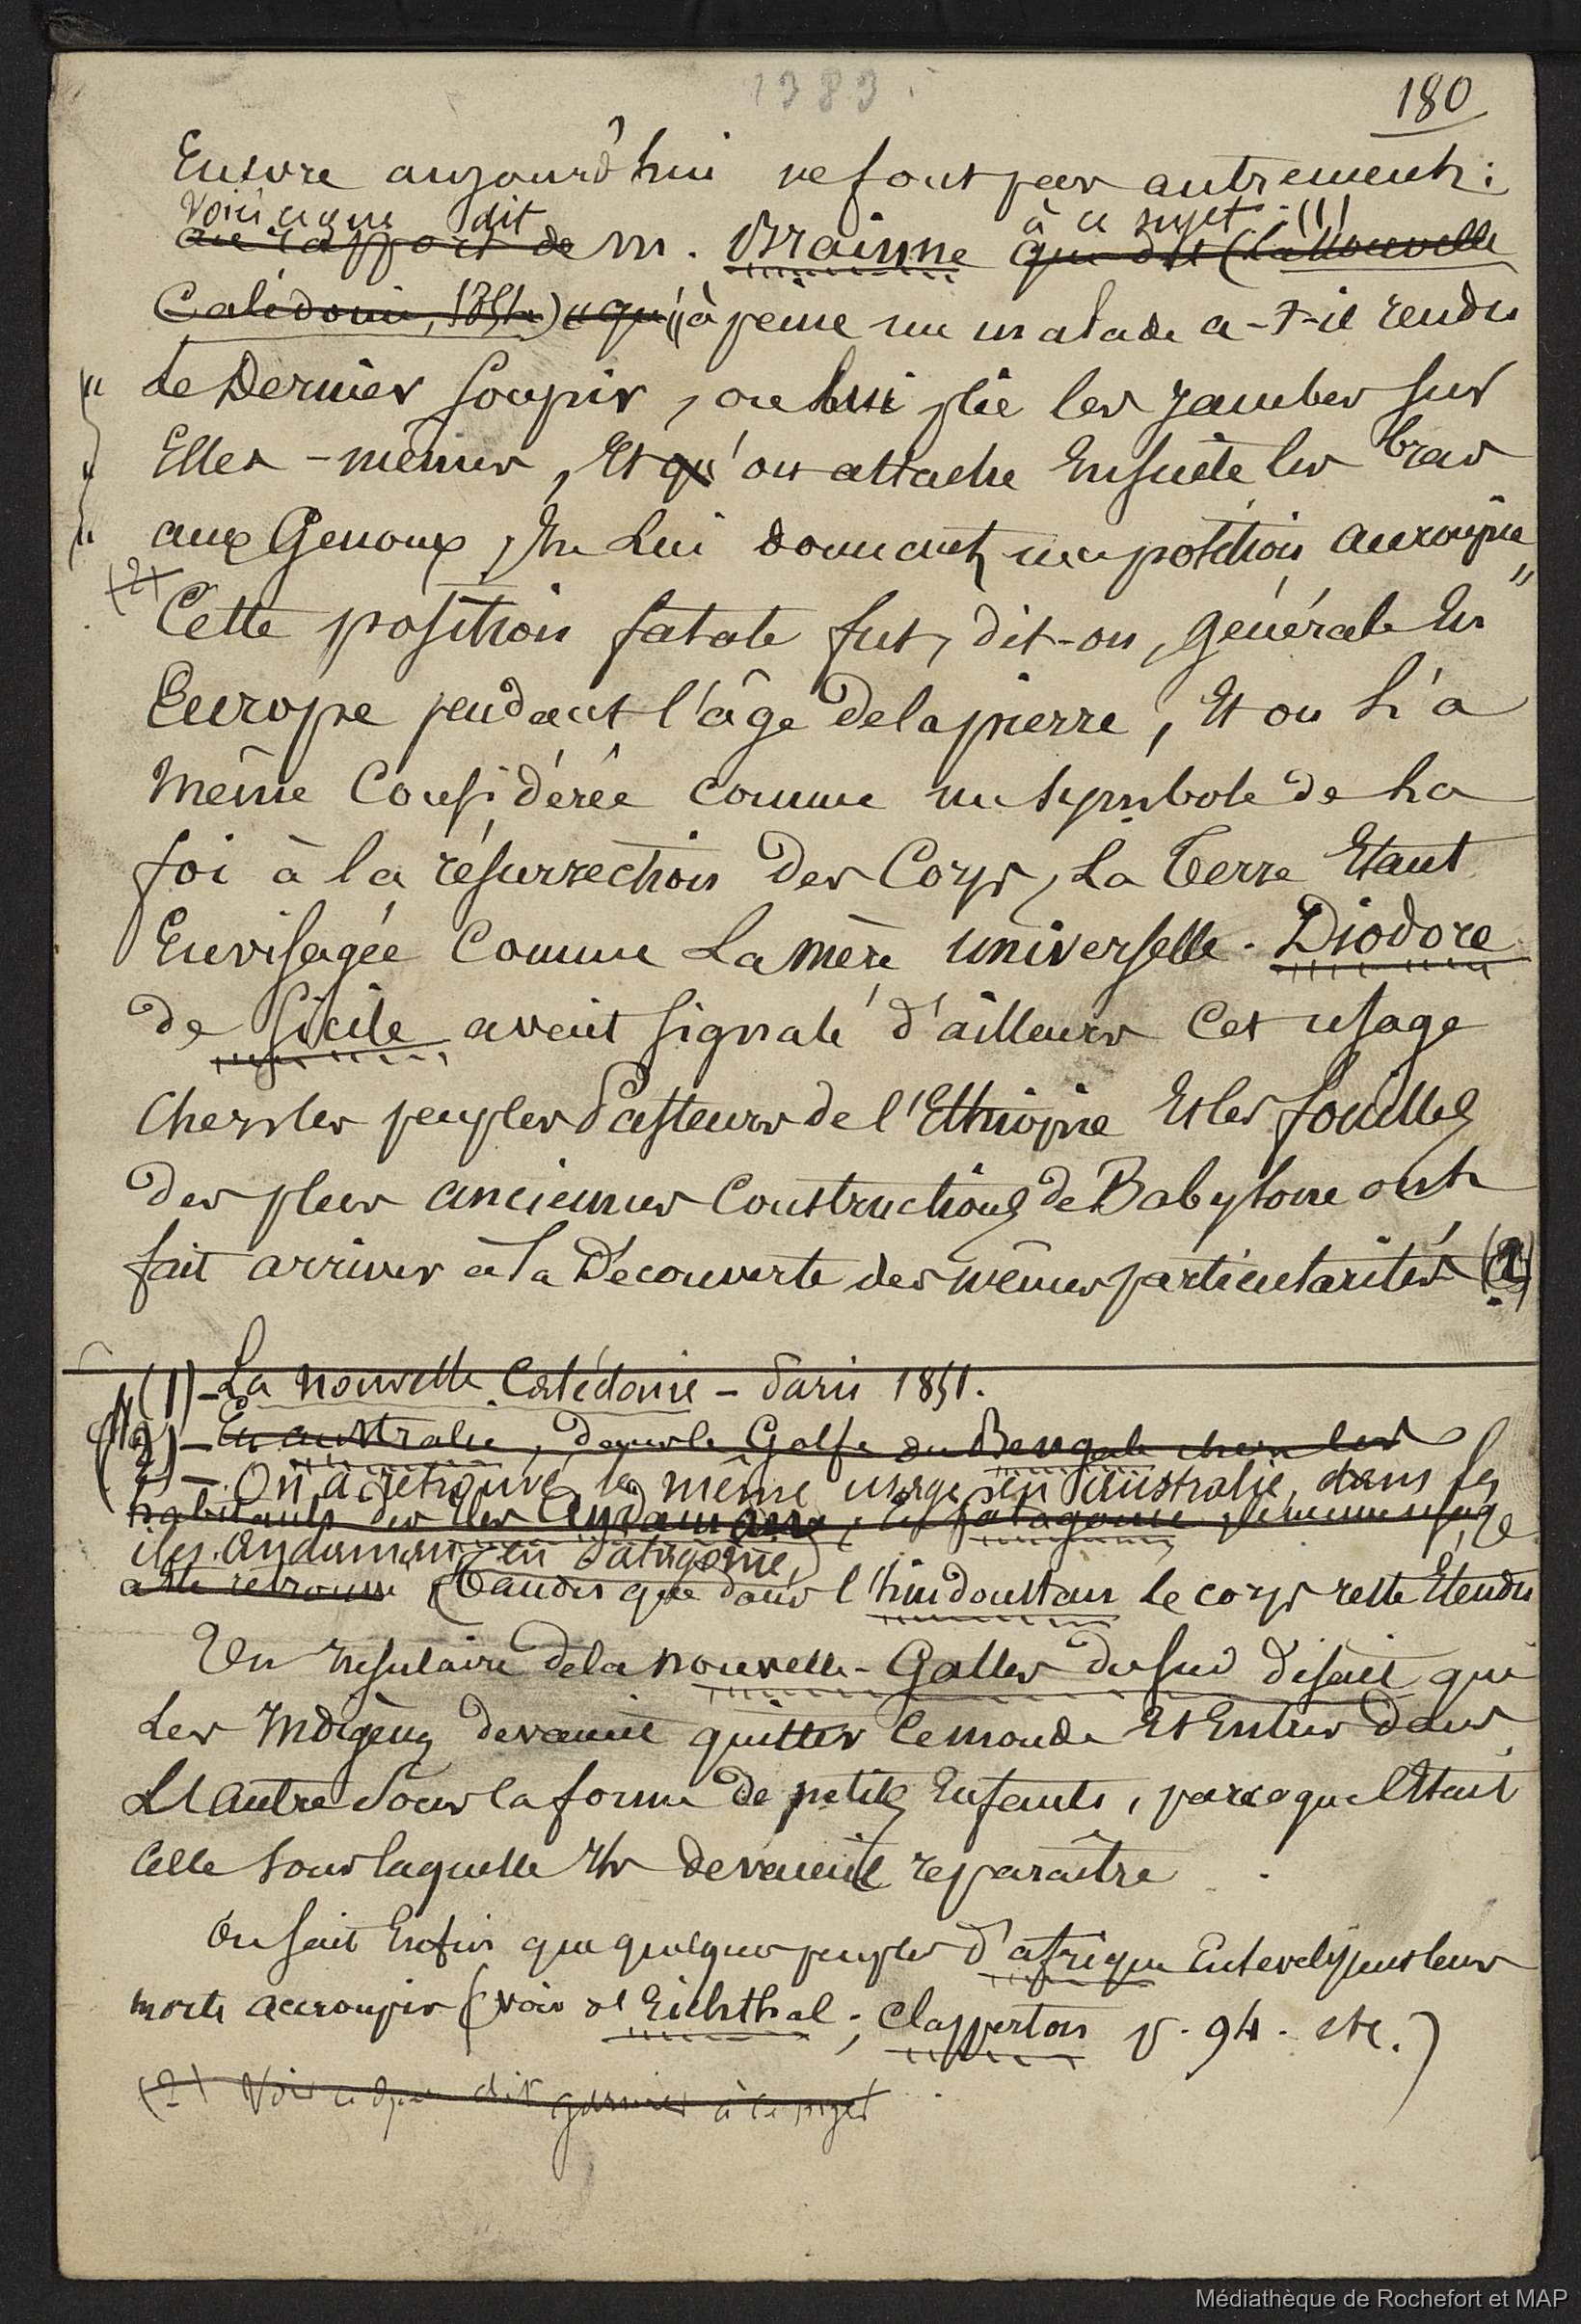 1383.
180
Encore aujourd'hui ne font pas autrement :
Voici ce que dit à ce sujet : (1)
au rapport de M. Brainne qui dit (La Nouvelle
Calédonie, 1854) « qu' "à peine un malade a-t-il rendu
" Le Dernier soupir, on lui plie les jambes sur
" Elles-mêmes, Et qu'on attache Ensuite les bras
" aux Genoux, En Lui donnant une position accroupie "
(2)
Cette position fatale fut, dit-on, générale En
Europe pendant l'âge de la pierre, Et on L'a
même Considérée comme un symbole de La
foi à la résurrection des Corps, La Terre Etant
Envisagée Comme La mère universelle. Diodore
de Sicile avait signalé d'ailleurs Cet usage
Chez les peuples Pasteurs de l'Ethiopie Et les fouilles
des plus anciennes Constructions de Babylone ont
fait arriver à la Découverte des mêmes particularités (2)
(1) - La Nouvelle Calédonie - Paris 1851.
(2) - En australie, dans le Golfe du Bengale chez les
2) - On a retrouvé le même usage en australie, dans les
habitants des îles Andaman, en Patagonie, le même usage
iles Andaman, en Patagonie,
a été retrouvé (Tandis que dans l'hindoustan Le corps reste Etendu
Un Insulaire de la nouvelle-Galles du sud disait que
Les Indigènes devaient quitter le monde Et Entrer dans
L'autre sous la forme de petits Enfants, parce que c'Etait
Celle sous laquelle Ils devaient reparaître.
On sait Enfin que quelques peuples d'afrique Ensevelissent leurs
morts accroupis (voir d'Eichthal ; Clapperton p. 94. etc.)
(2) Voir ce que dit garnier à ce sujet
Médiathèque de Rochefort et MAP